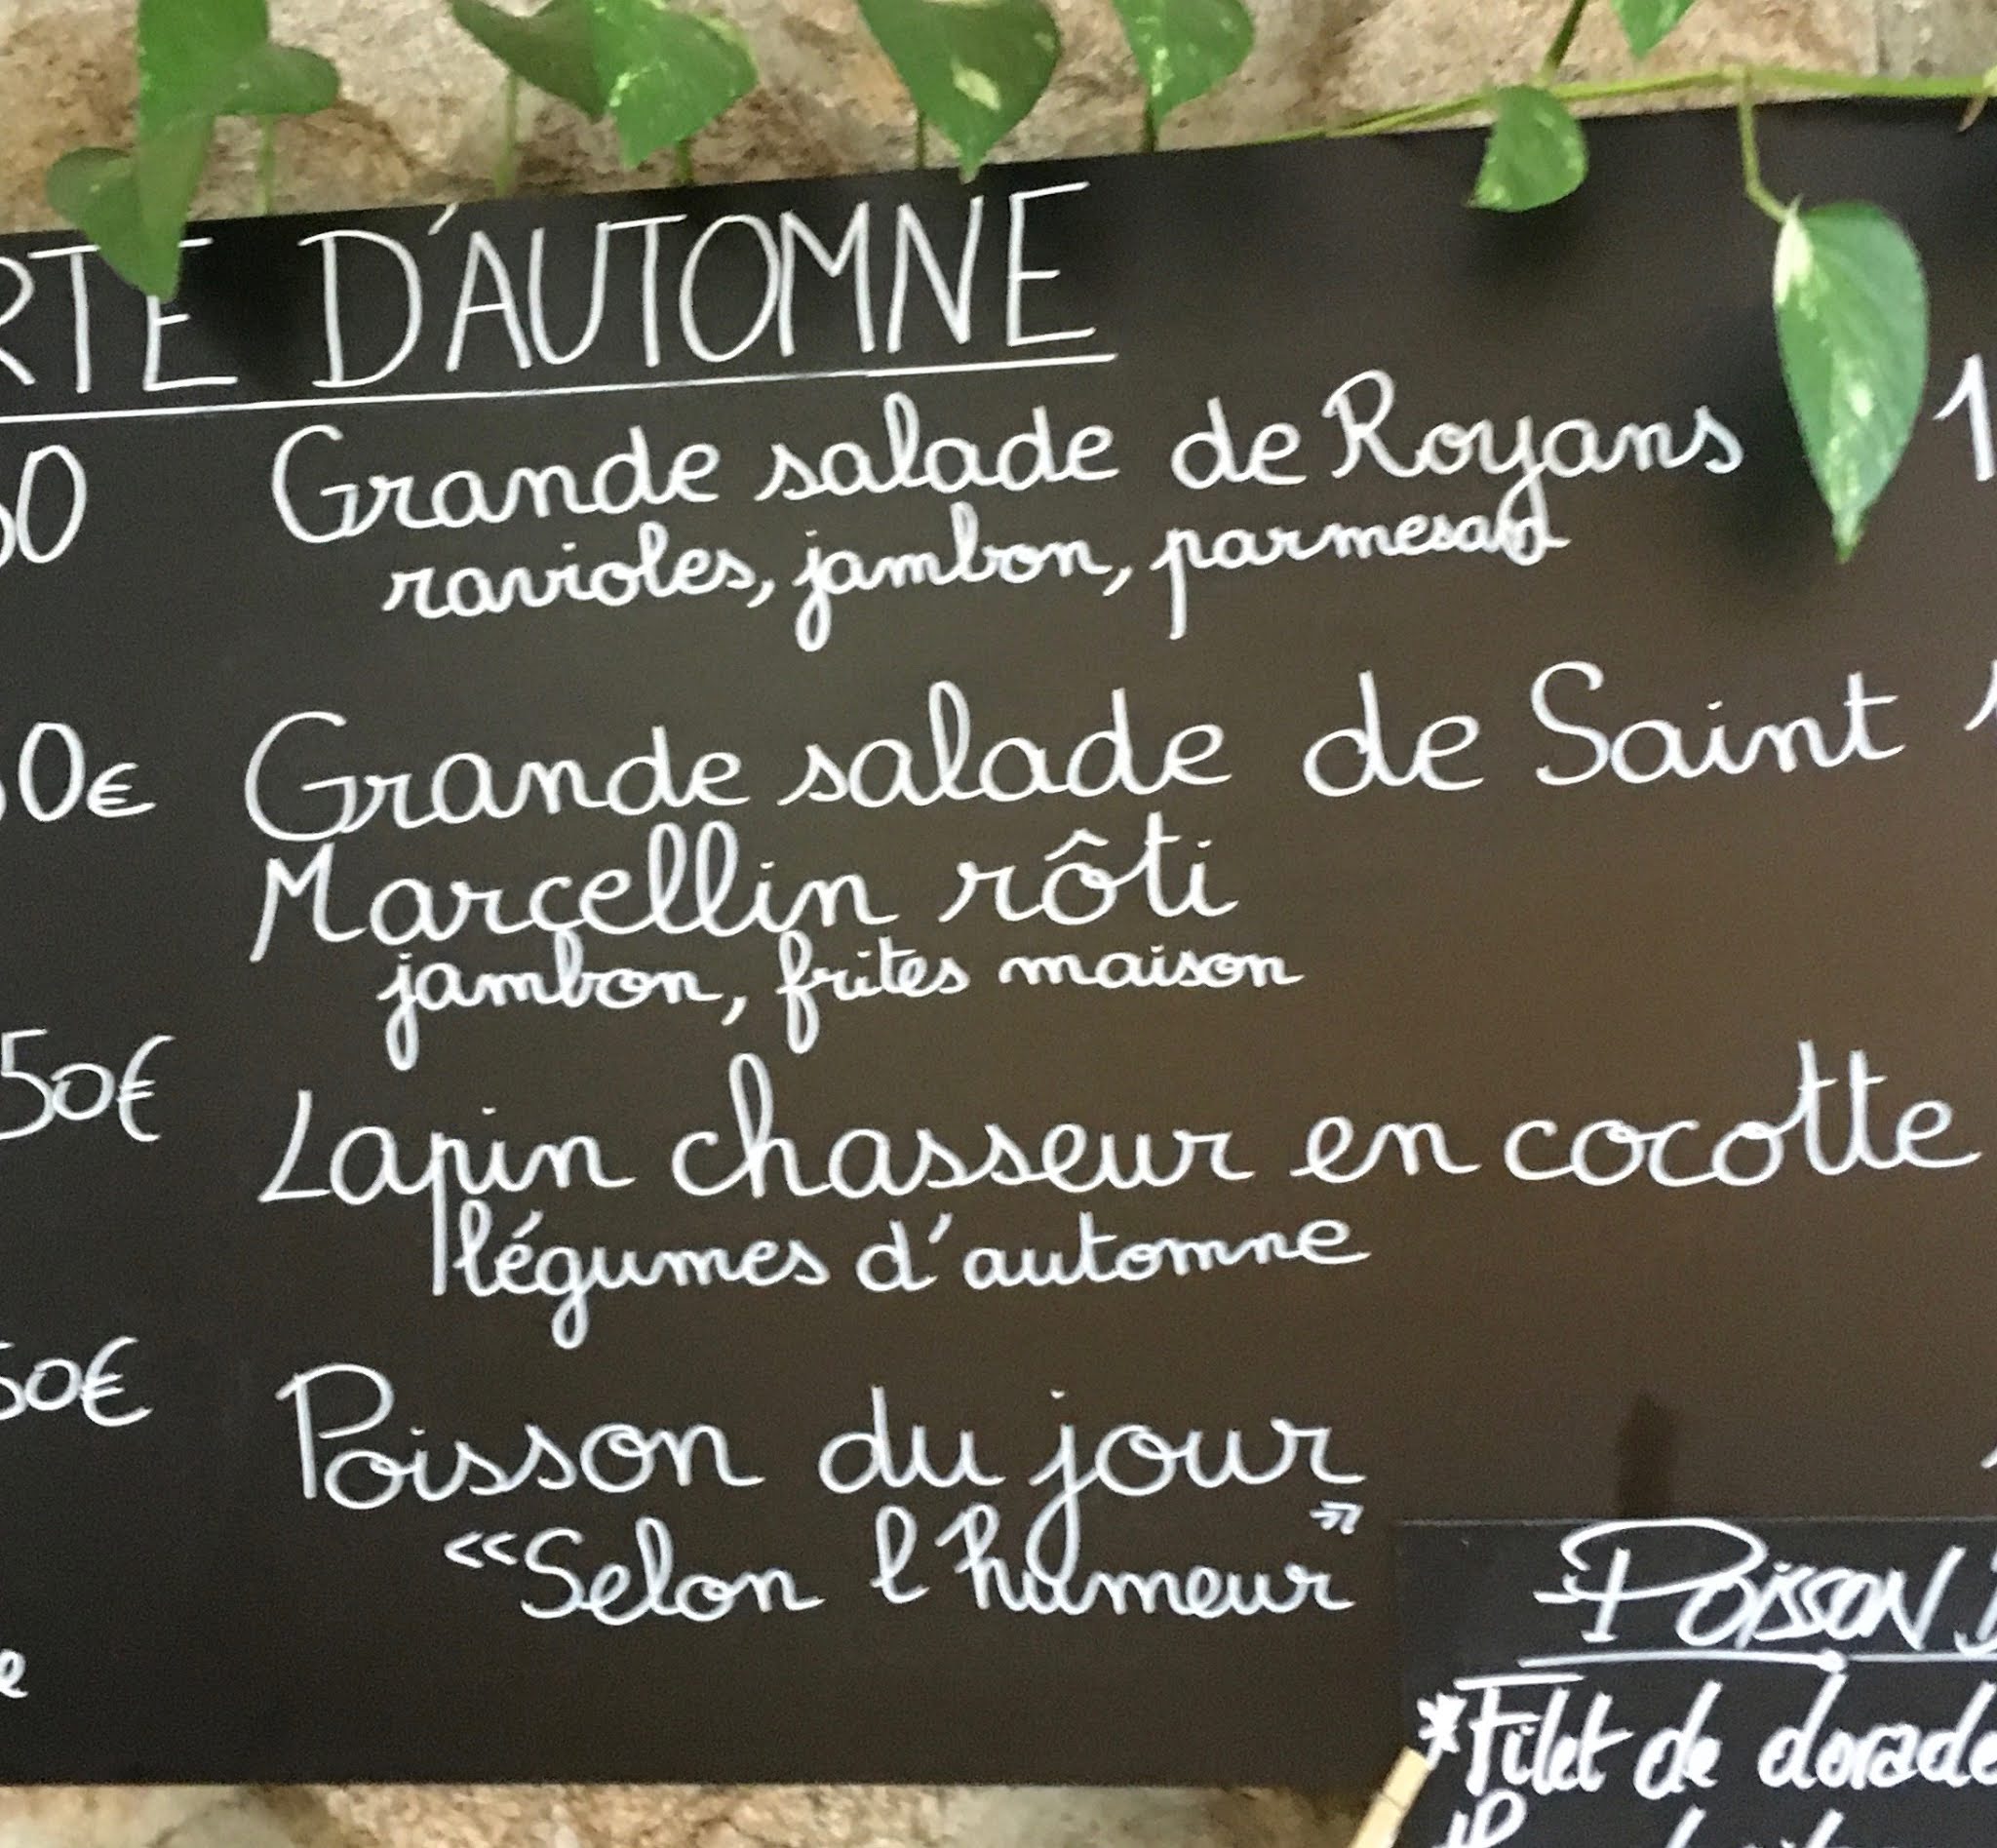 RTE D'AUTOMNE
50 Grande salade de Royans 1
ravioles, jambon, parmesan
50€ Grande salade de Saint
Marcellin rôti
jambon, frites maison
50€
Lapin chasseur en cocotte
légumes d'automne
50€
Poisson du jour
«Selon l'humeur»
POISSON
*Filet de dorade